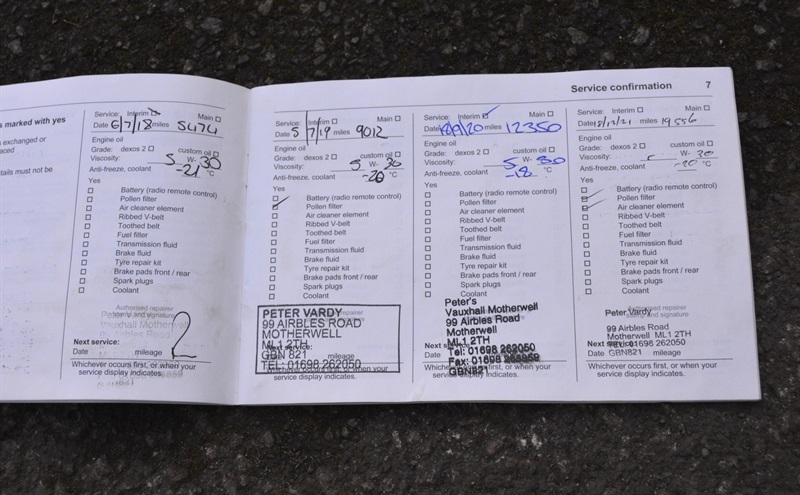 s marked with yes
exchanged or
aced
tails must not be
Service: Interim Main
Date 6/7/18 miles 5474
Engine oil
Grade: dexos 2 custom oil
Viscosity: 5 W- 30
Anti-freeze, coolant -21 °C
Yes
Battery (radio remote control)
Pollen filter
Air cleaner element
Ribbed V-belt
Toothed belt
Fuel filter
Transmission fluid
Brake fluid
Tyre repair kit
Brake pads front / rear
Spark plugs
Coolant
Authorised repairer
Vauxhall Motherwell
Next service:
Date mileage
2
Whichever occurs first, or when your
service display indicates.
Service: Interim Main
Date 5/7/19 miles 9012
Engine oil
Grade: dexos 2 custom oil
Viscosity: 5 W- 30
Anti-freeze, coolant -20 °C
Yes
Battery (radio remote control)
Pollen filter
Air cleaner element
Ribbed V-belt
Toothed belt
Fuel filter
Transmission fluid
Brake fluid
Tyre repair kit
Brake pads front / rear
Spark plugs
Coolant
PETER VARDY
99 AIRBLES ROAD
MOTHERWELL
ML1 2TH
GBN 821
TEL: 01698 262050
Next service:
mileage
Whichever occurs first, or when your
service display indicates.
Service confirmation 7
Service: Interim Main
Date 18/9/20 miles 12350
Engine oil
Grade: dexos 2 custom oil
Viscosity: 5 W- 30
Anti-freeze, coolant -18 °C
Yes
Battery (radio remote control)
Pollen filter
Air cleaner element
Ribbed V-belt
Toothed belt
Fuel filter
Transmission fluid
Brake fluid
Tyre repair kit
Brake pads front / rear
Spark plugs
Coolant
Peter's
Vauxhall Motherwell
99 Airbles Road
Motherwell
ML1 2TH
Tel: 01698 262050
GBN821
mileage
Whichever occurs first, or when your
service display indicates.
Service: Interim Main
Date 18/12/21 miles 19556
Engine oil
Grade: dexos 2 custom oil
Viscosity: W- 30
Anti-freeze, coolant -20 °C
Yes
Battery (radio remote control)
Pollen filter
Air cleaner element
Ribbed V-belt
Toothed belt
Fuel filter
Transmission fluid
Brake fluid
Tyre repair kit
Brake pads front / rear
Spark plugs
Coolant
Peter Vardy
99 Airbles Road
Motherwell ML1 2TH
TEL: 01698 262050
Date GBN821 mileage
Whichever occurs first, or when your
service display indicates.